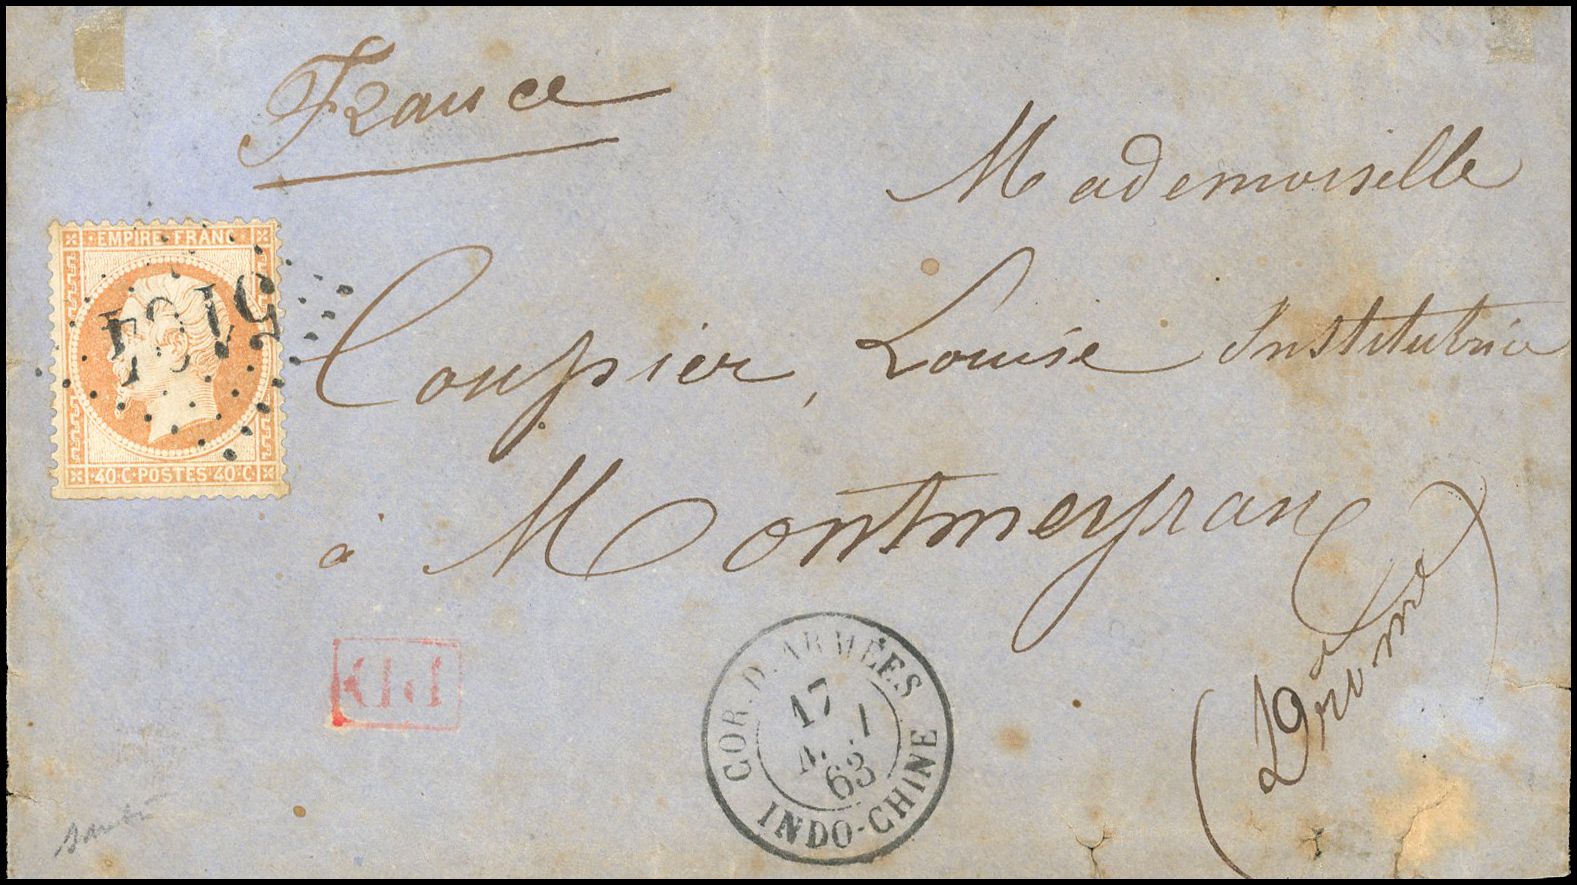 France
Mademoiselle
EMPIRE FRANC
5104
40·C·POSTES·40·C
Coupier, Louise Institutrice
à Montmeyran
(Drôme)
PD
COR. D. ARMÉES
17
63
INDO-CHINE